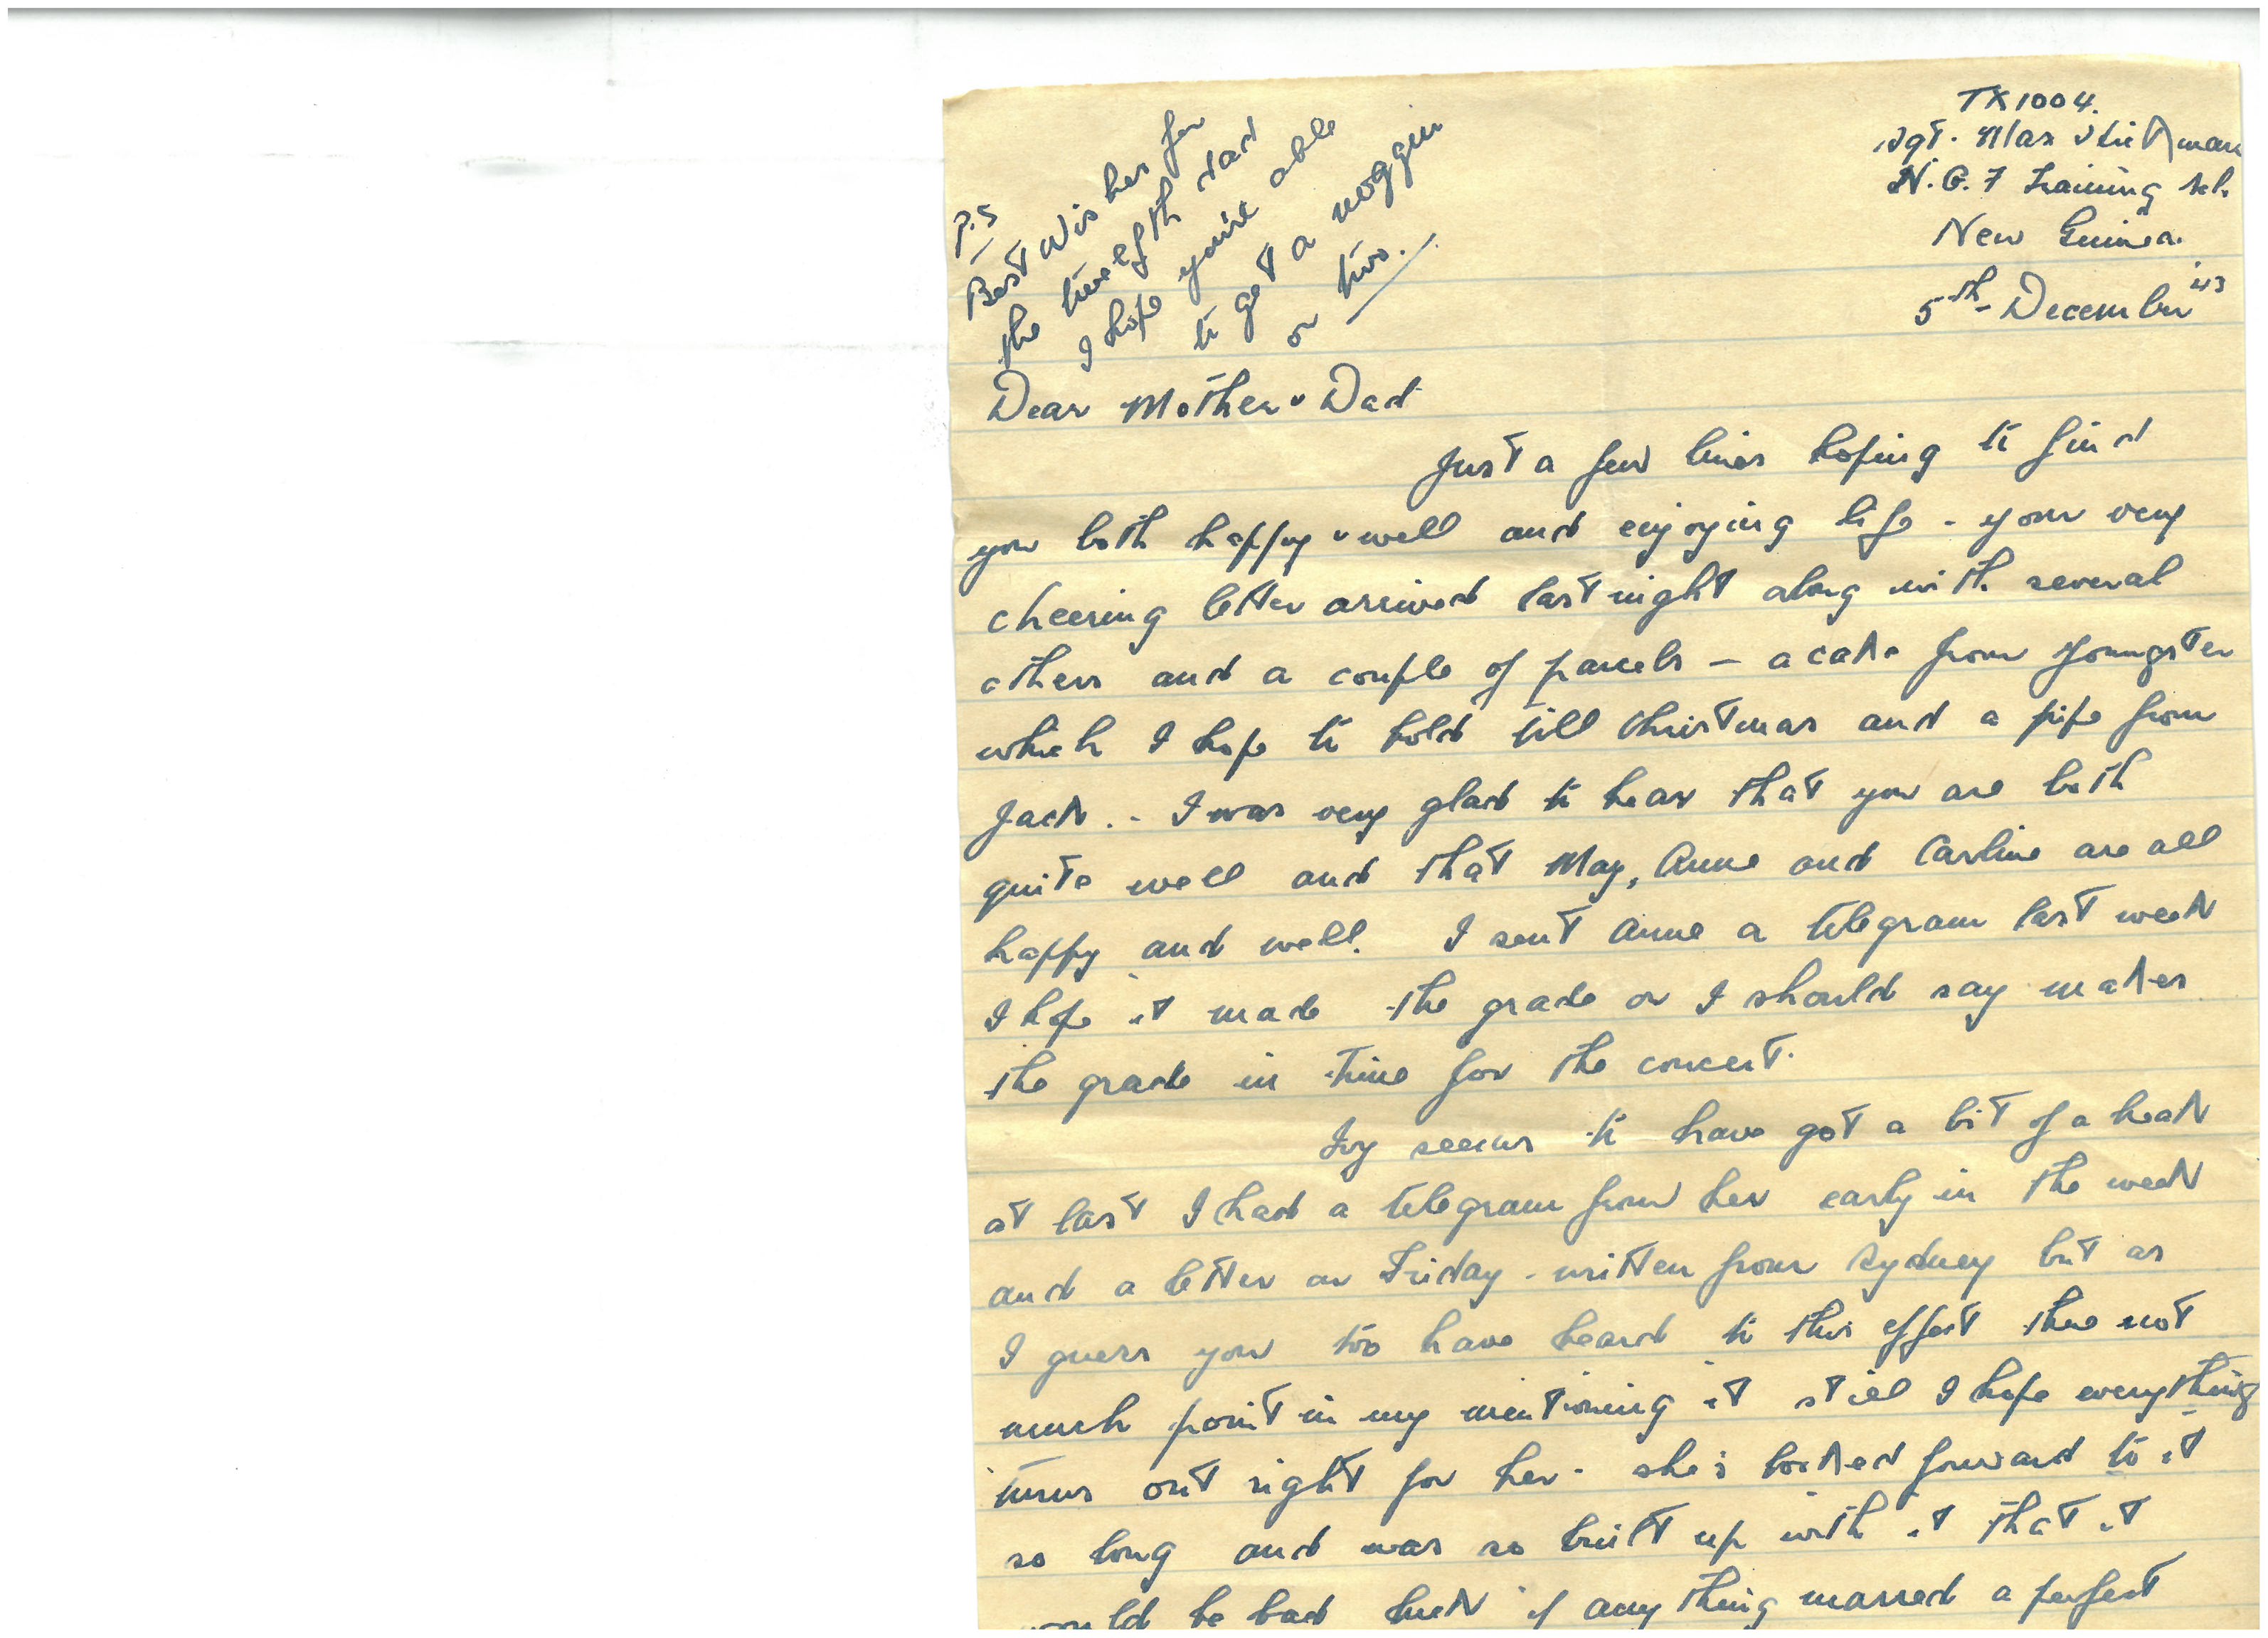 TX1004.
Sgt. Max
N.G.F Training Sch.
New Guinea.
5th December '43
P.S
Best Wishes for
the twelfth dad
I hope you're able
to get a noggin
or two.
Dear Mother & Dad
Just a few lines hoping to find
you both happy & well and enjoying life - your very
cheering letter arrived last night along with several
others and a couple of parcels — a cake from youngster
which I hope to hold till Christmas and a pipe from
Jack .. I was very glad to hear that you are both
quite well and that May, Anne and Carline are all
happy and well. I sent Anne a telegram last week
I hope it made the grade or I should say makes
the grade in time for the concert.
Ivy seems to have got a bit of a break
at last I had a telegram from her early in the week
and a letter on Friday - written from Sydney but as
I guess you too have heard to this effect there not
much point in my mentioning it still I hope everything
turns out right for her - she's looked forward to it
so long and was so built up with it that it
would be bad luck if any thing marred a perfect